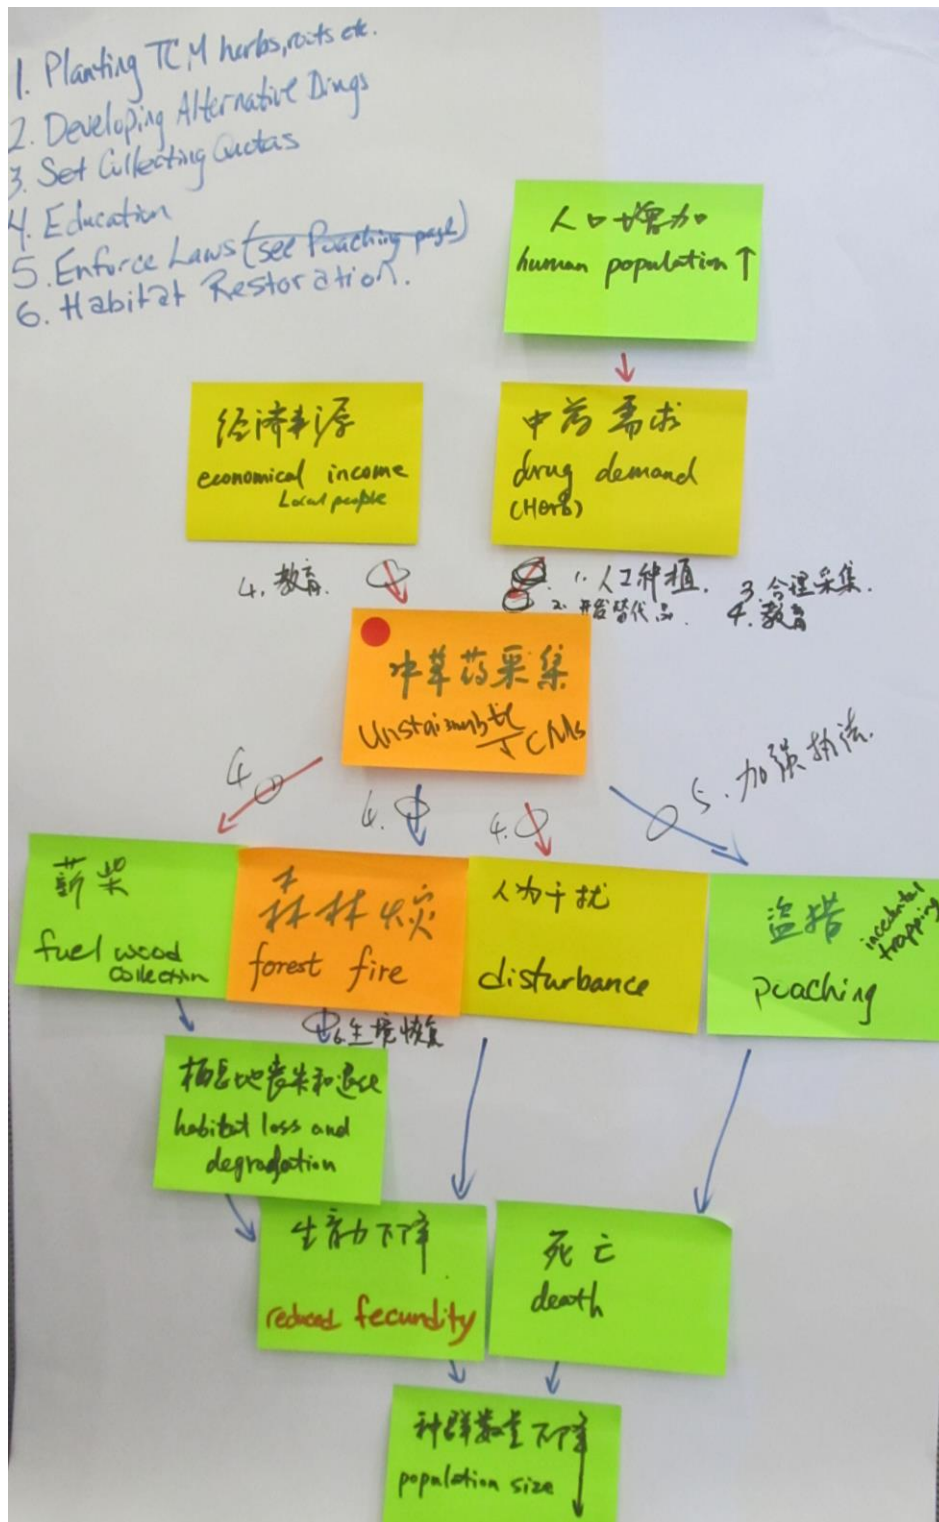 1. Planting TCM herbs, roots etc.
2. Developing Alternative Drugs
3. Set Collecting Quotas
4. Education
5. Enforce Laws (see Poaching page)
6. Habitat Restoration.
人口增加
human population ↑
经济来源
economical income
Local people
中药需求
drug demand
(Herb)
4. 教育.
1. 人工种植.
2. 开发替代品.
3. 合理采集.
4. 教育
中草药采集
CMs
4
4.
4.
5. 加强执法.
薪柴
fuel wood
collection
森林火灾
forest fire
人为干扰
disturbance
盗猎
incedental
trapping
poaching
6. 生境恢复
栖息地丧失和退化
habitat loss and
degradation
生育力下降
reduced fecundity
死亡
death
种群数量下降
population size ↓